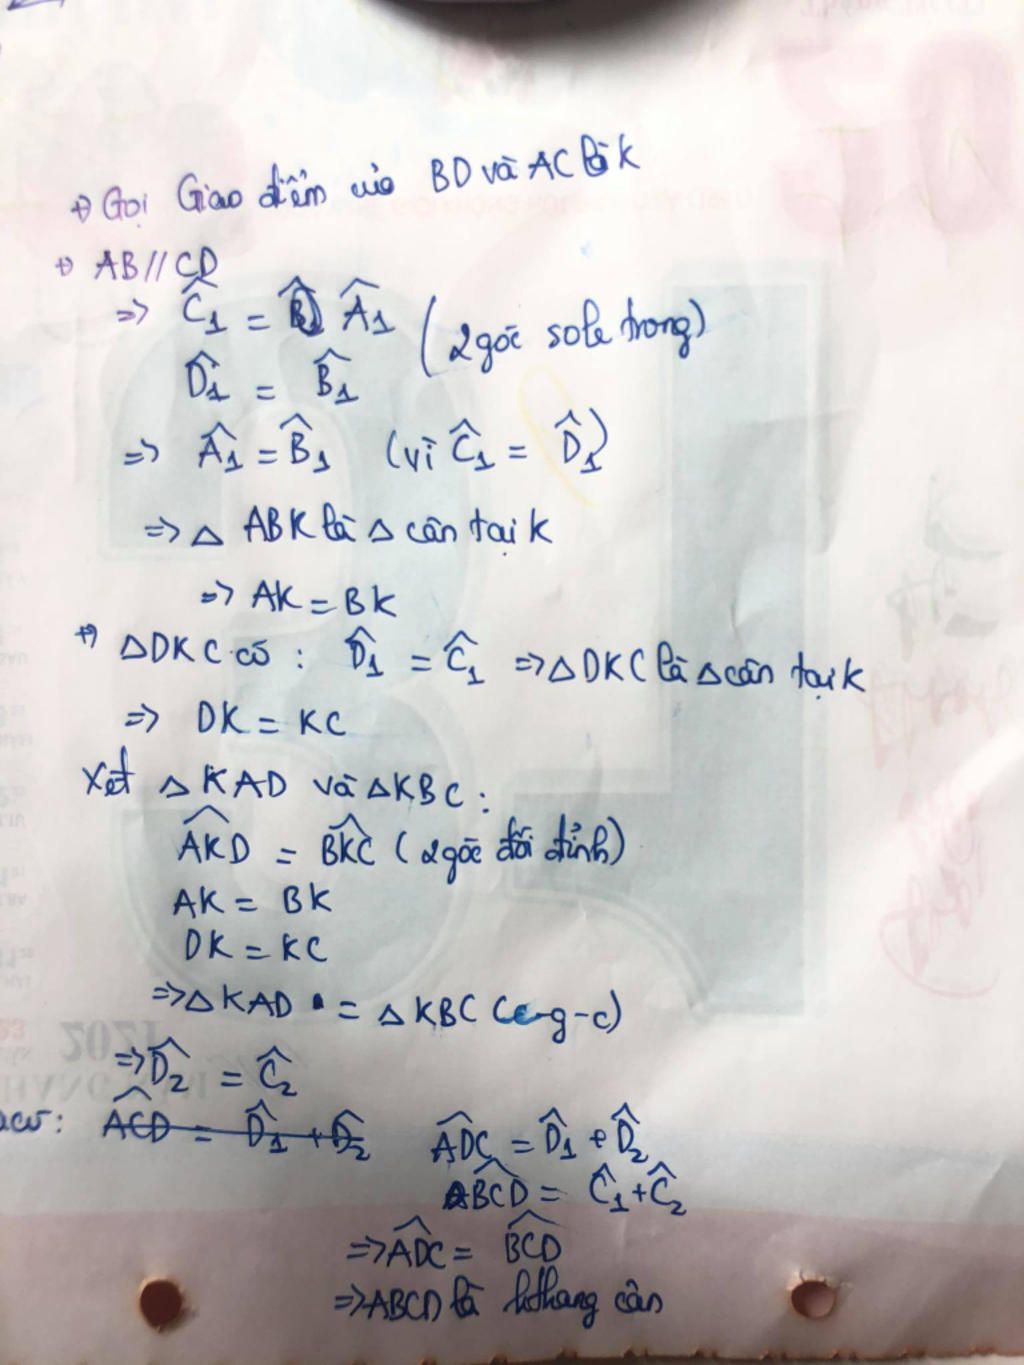 +) Gọi Giao điểm của BD và AC là K
+) AB // CD
=> Ĉ₁ = Â₁ (2 góc sole trong)
D̂₁ = B̂₁
=> Â₁ = B̂₁ (vì Ĉ₁ = D̂₁)
=> △ ABK là △ cân tại K
=> AK = BK
+) △DKC có : D̂₁ = Ĉ₁ => △DKC là △cân tại K
=> DK = KC
Xét △ KAD và △KBC :
AKD̂ = BKĈ (2 góc đối đỉnh)
AK = BK
DK = KC
=> △KAD = △KBC (c-g-c)
=> D̂₂ = Ĉ₂
ACD = D̂₁ + D̂₂ ADC = D̂₁ + D̂₂
BCD = Ĉ₁ + Ĉ₂
=> ADC = BCD
=> ABCD là hthang cân
2021